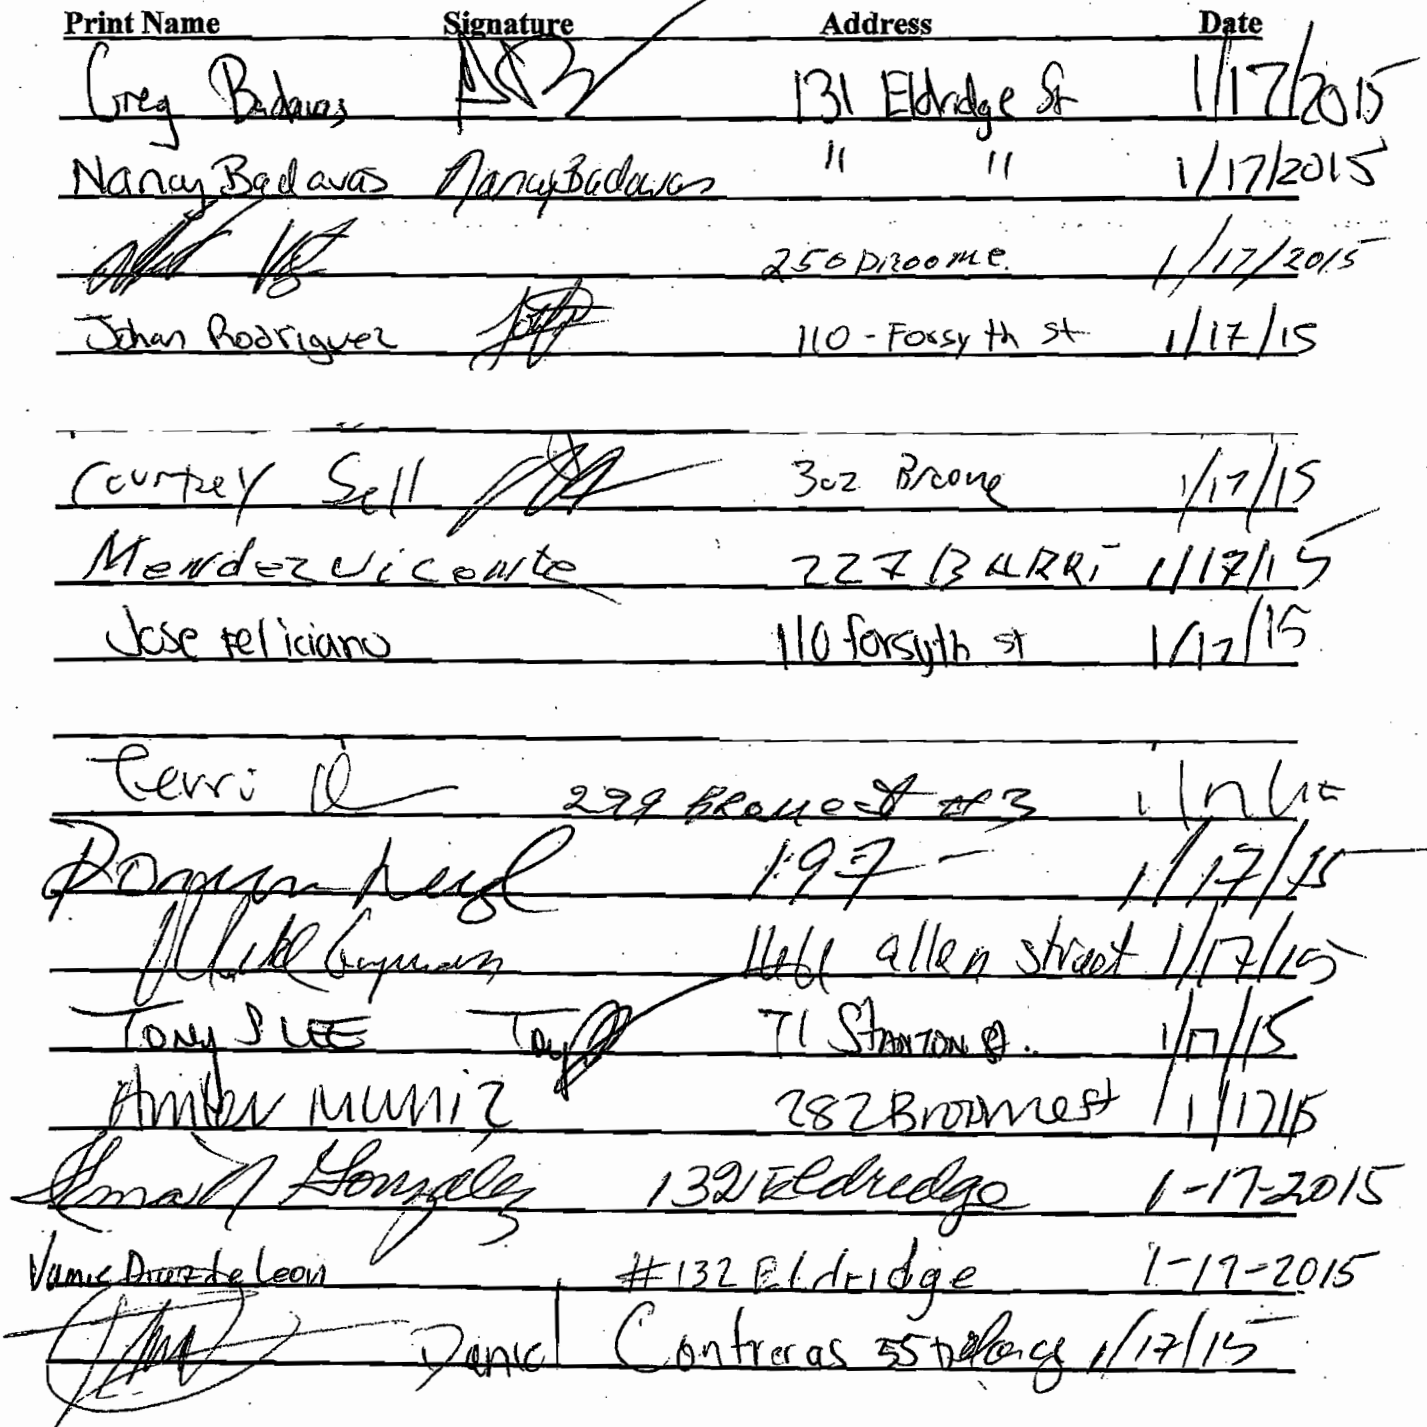 Print Name Signature Address Date
Greg Badavas 131 Eldridge St 1/17/2015
Nancy Badavas Nancy Badavas " " 1/17/2015
250 Broome. 1/17/2015
Johan Rodriguez 110 - Forsyth st 1/17/15
Courtney Sell 302 Broome 1/17/15
Mendez Vicente 227 1/17/15
Jose Feliciano 110 forsyth st 1/17/15
Terri 299 Broome st #3
197 - 1/17/15
allen street 1/17/15
Tony S LEE Tony 71 STANTON St. 1/17/15
Amber MUNIZ 282 Broome st 1/17/15
Gonzalez 132 Eldredge 1-17-2015
de Leon #132 Eldridge 1-17-2015
Daniel Contreras 55 1/17/15